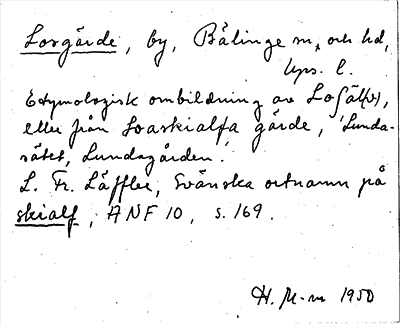 Lorgärde, by, Bälinge sn, och hd,
Ups. l.
Etymologisk ombildning av
eller från Loaskialfa gärde, 'Lunda-
sätet, Lundagården'.
L. Fr. Läffler, Svänska ortnamn på
skialf, ANF 10, s. 169.
H. M-m 1950